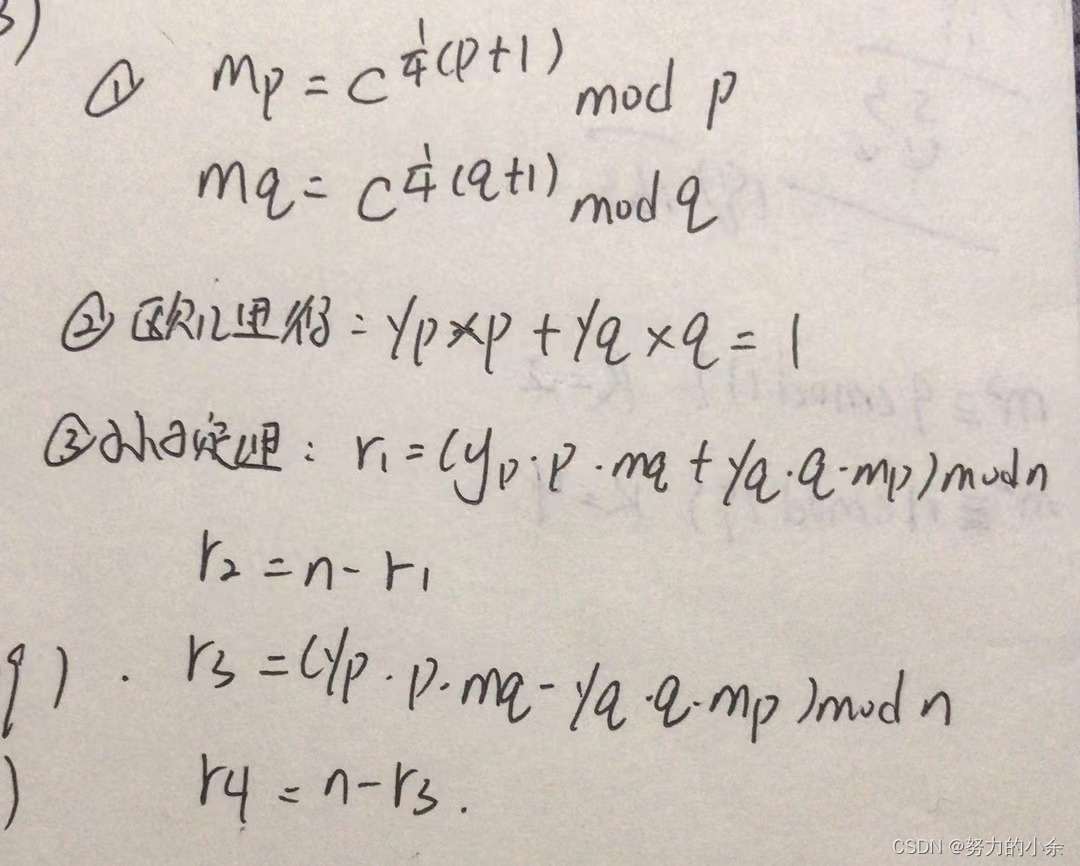 3)
① mp = c^{\frac{1}{4}(p+1)} mod p
mq = c^{\frac{1}{4}(q+1)} mod q
② 欧几里得: yp×p + yq×q = 1
③ 定理: r₁ = (yp·p·mq + yq·q·mp) mod n
r₂ = n - r₁
q) . r₃ = (yp·p·mq - yq·q·mp) mod n
) r4 = n - r₃.
CSDN @努力的小余